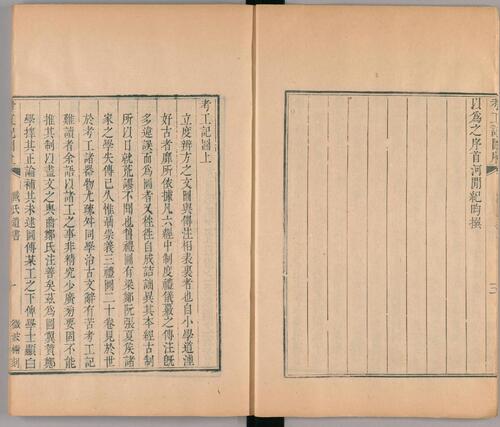 考工記圖序
以為之序首河閒紀昀撰
三
考工記圖上
立度辨方之文圖與傳注相表裏者也自小學道湮
好古者靡所依據凡六經中制度禮儀覈之傳注旣
多違誤而為圖者又往往自成詰詘異其本經古制
所以日就荒謬不聞也舊禮圖有梁鄭阮張夏矦諸
家之學失傳已久惟聶崇義三禮圖二十卷見於世
於考工諸器物尤疏舛同學治古文辭有苦考工記
難讀者余語以諸工之事非精究少廣旁要固不能
推其制以盡文之奧曲鄭氏注善矣茲為圖翼贊鄭
學擇其正論補其未逮圖傳某工之下俾學士顯白
考工記圖上
戴氏遺書
一
微波榭刻